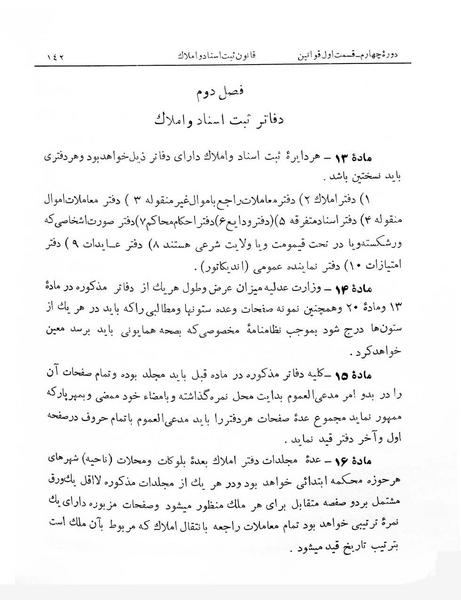 دورهٔ چهارم ـ قسمت اول قوانین قانون ثبت اسناد و املاک ۱۴۲
فصل دوم
دفاتر ثبت اسناد و املاک
مادهٔ ۱۳ ـ هر دایرهٔ ثبت اسناد و املاک دارای دفاتر ذیل خواهد بود و هر دفتری
باید نسختین باشد .
۱) دفتر املاک ۲) دفتر معاملات راجع باموال غیر منقوله ۳) دفتر معاملات اموال
منقوله ۴) دفتر اسناد متفرقه ۵) (دفتر ودایع ۶) دفتر احکام محاکم ۷) دفتر صورت اشخاصی که
ورشکسته ویا در تحت قیمومت ویا ولایت شرعی هستند ۸) دفتر عایدات ۹) دفتر
امتیازات ۱۰) دفتر نماینده عمومی (اندیکاتور) .
مادهٔ ۱۴ ـ وزارت عدلیه میزان عرض وطول هر یک از دفاتر مذکوره در مادهٔ
۱۳ ومادهٔ ۲۰ وهمچنین نمونه صفحات وعده ستونها ومطالبی راکه باید در هر یک از
ستون‌ها درج شود بموجب نظامنامهٔ مخصوصی که بصحه همایونی باید برسد معین
خواهد کرد .
مادهٔ ۱۵ ـ کلیه دفاتر مذکوره در ماده قبل باید مجلد بوده وتمام صفحات آن
را در بدو امر مدعی العموم بدایت محل نمره گذاشته و بامضاء خود ممضی و بمهر پارکه
ممهور نماید مجموع عدهٔ صفحات هر دفتر را باید مدعی العموم باتمام حروف در صفحه
اول و آخر دفتر قید نماید .
مادهٔ ۱۶ ـ عدهٔ مجلدات دفتر املاک بعدهٔ بلوکات ومحلات (ناحیه) شهرهای
هر حوزه محکمه ابتدائی خواهد بود ودر هر یک از مجلدات مذکوره لااقل یک ورق
مشتمل بر دو صفصه متقابل برای هر ملک منظور میشود وصفحات مزبوره دارای یک
نمرهٔ ترتیبی خواهد بود تمام معاملات راجعه بانتقال املاک که مربوط بآن ملک است
بترتیب تاریخ قید میشود .